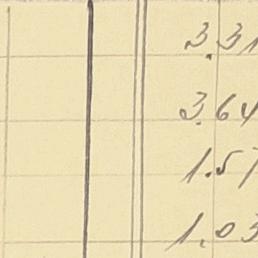 3.31
3.64
1.57
1.03